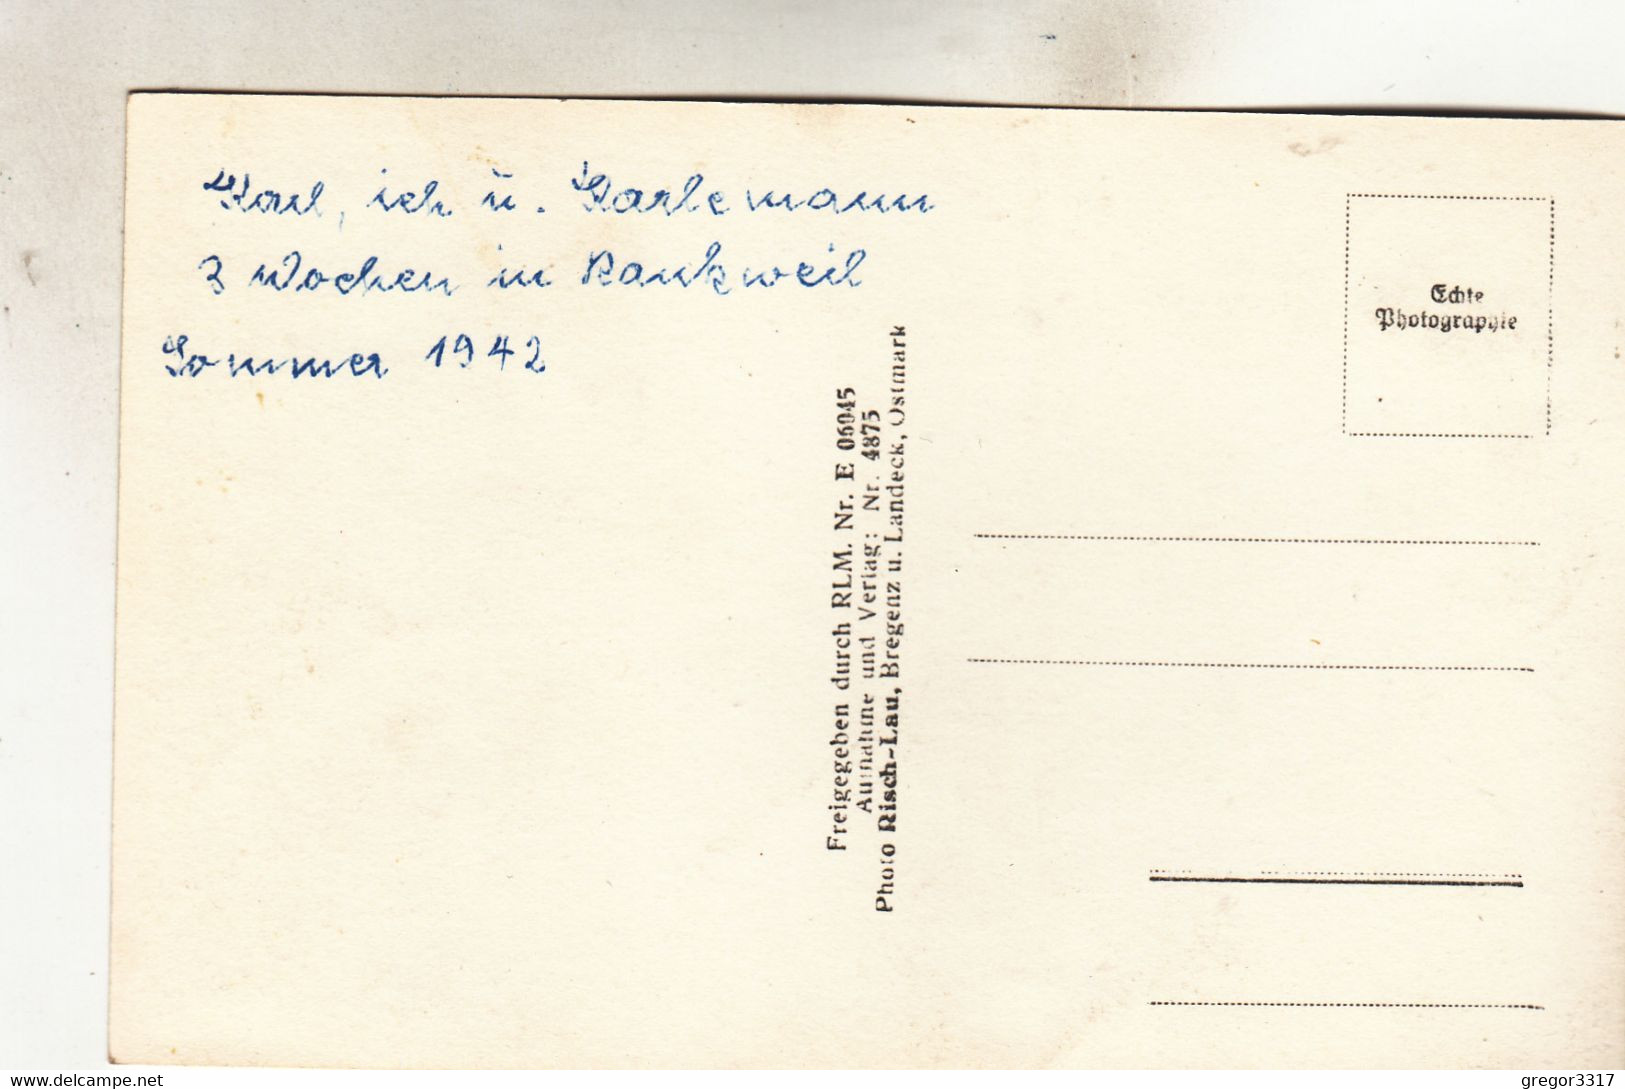 Karl, ich u. Karlemann
3 Wochen in Rankweil
Sommer 1942
Echte
Photographie
Freigegeben durch RLM. Nr. E 06045
Aufnahme und Verlag: Nr. 4875
Photo Risch-Lau, Bregenz u. Landeck, Ostmark
www.delcampe.net
gregor3317